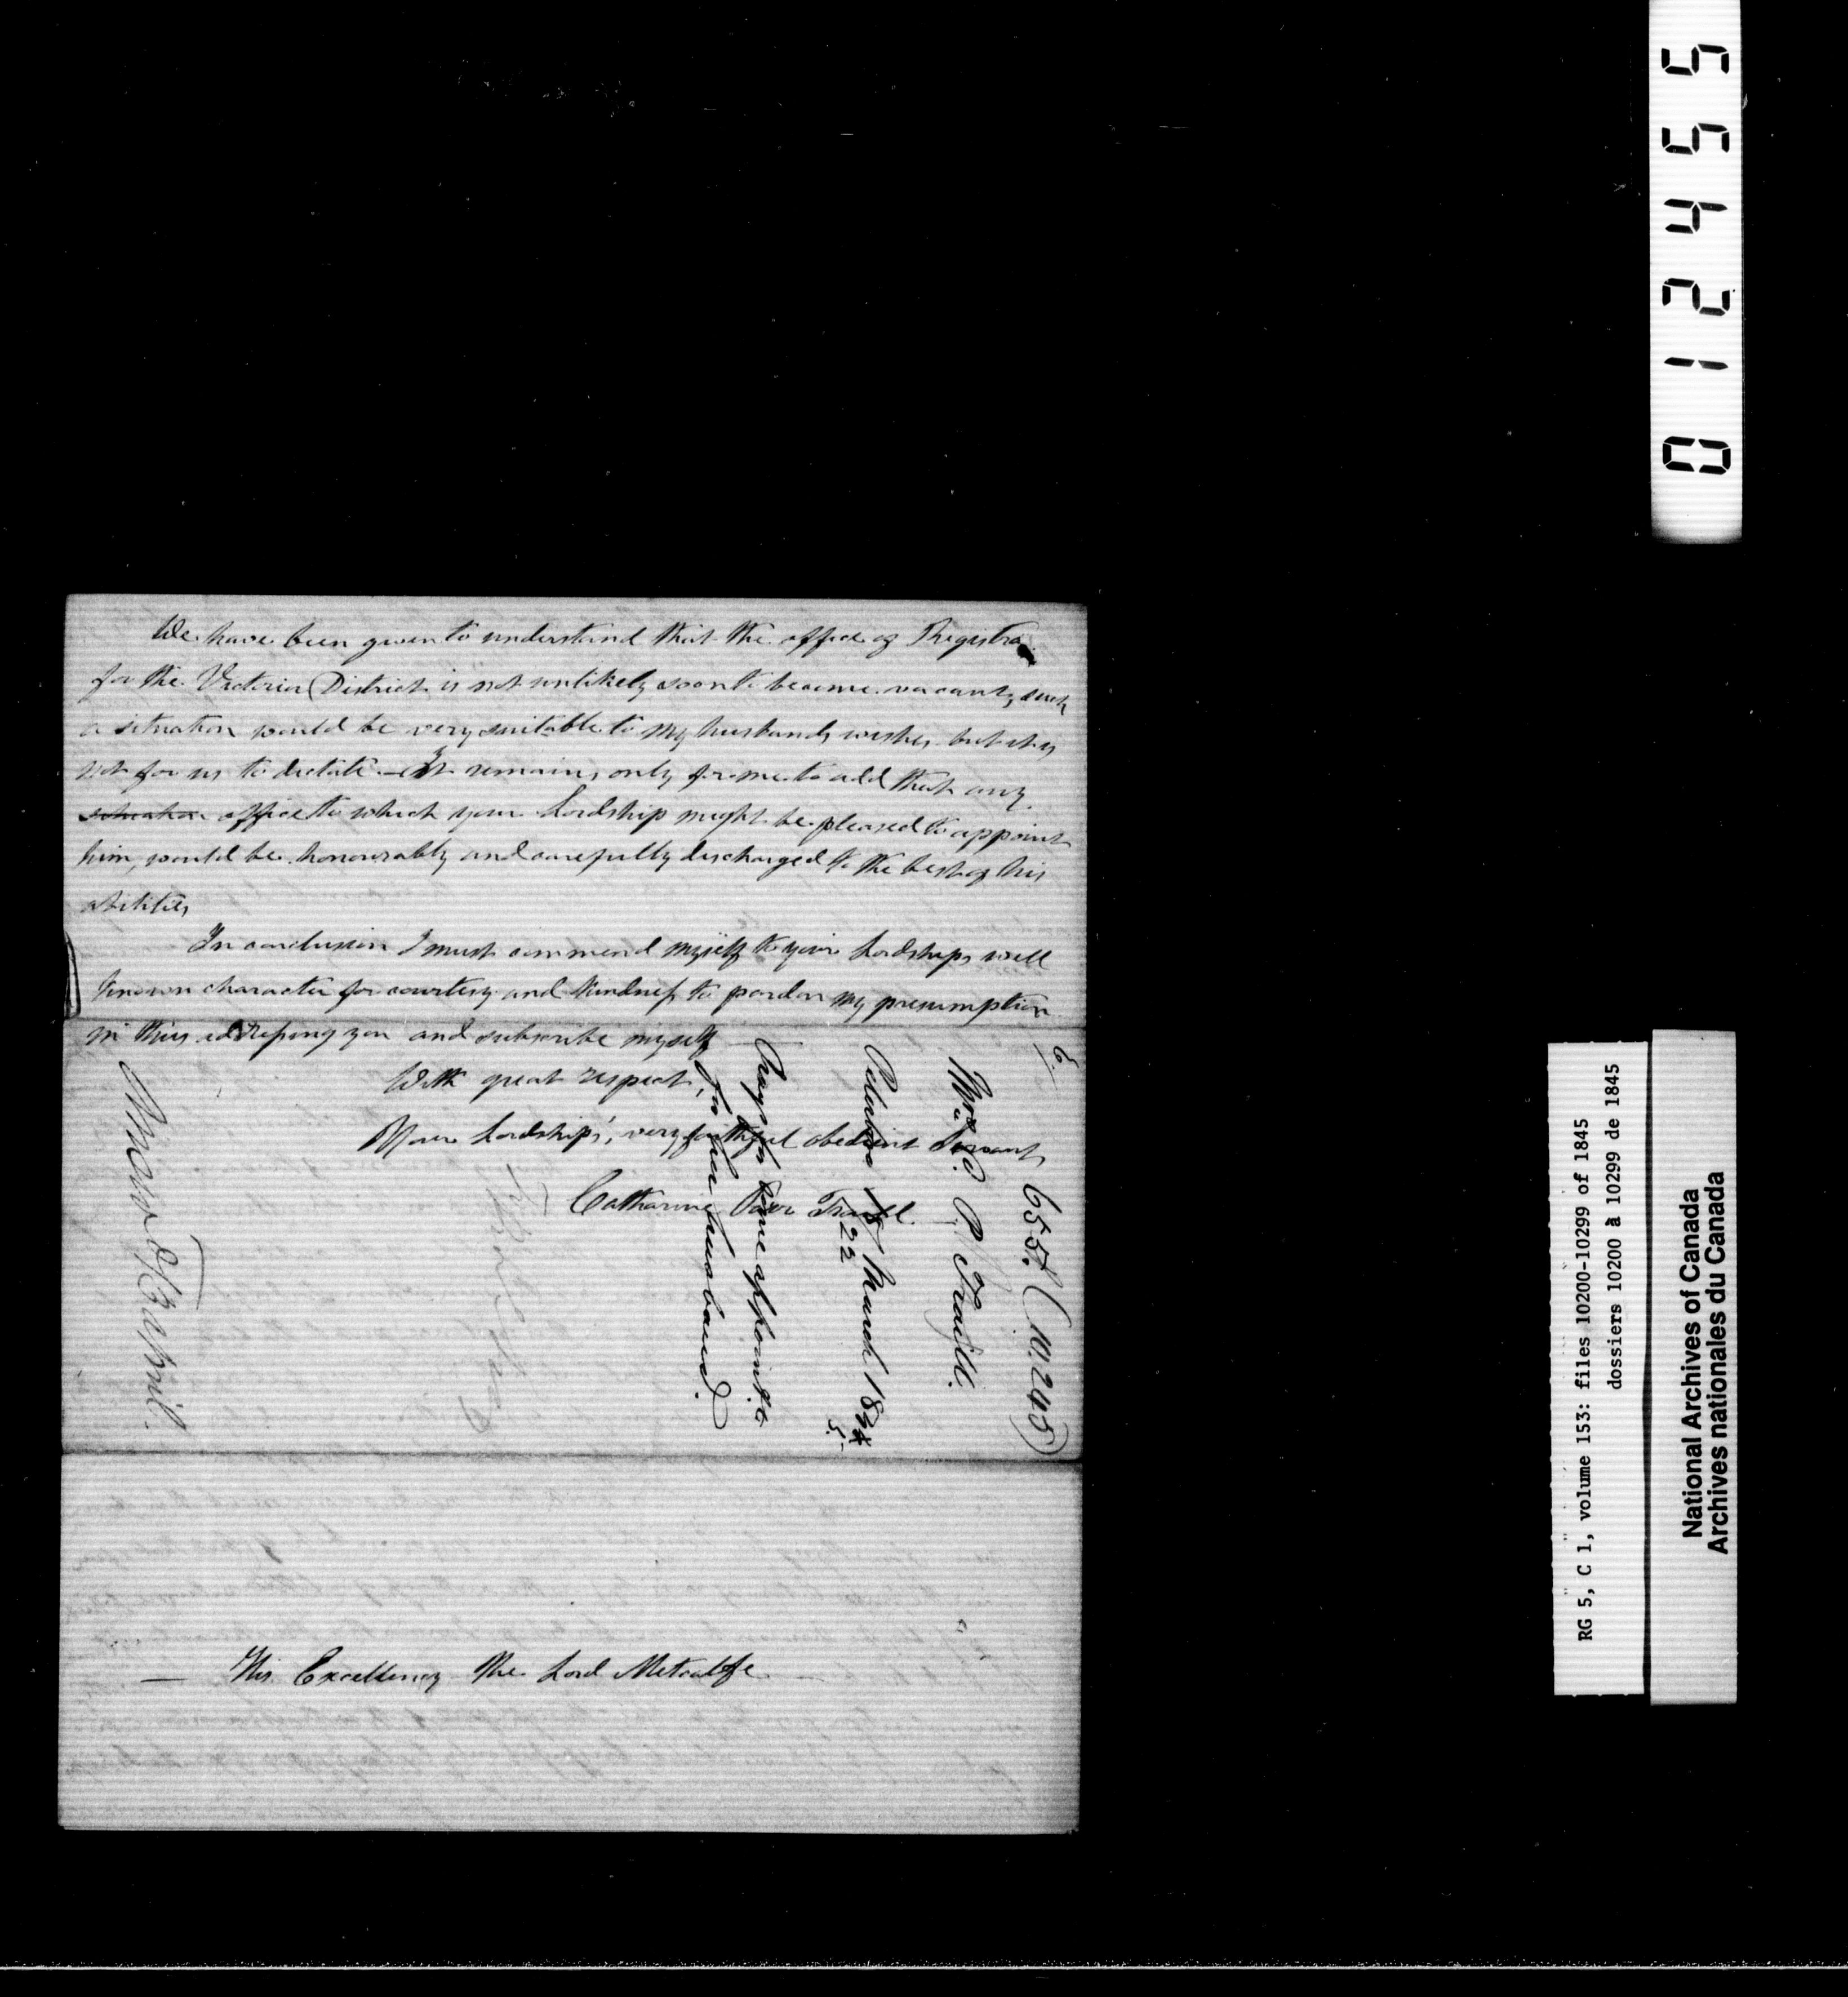 We have been given to understand that the office of Registra
for the Victoria District is not unlikely soon to become vacant, such
a situation would be very suitable to my husbands wishes but it is
not for us to dictate — It remains only for me to add that any
situation office to which your Lordship might be pleased to appoint
him, would be honourably and carefully discharged to the best of his
abilities
In conclusion I must commend myself to your Lordships well
known character for courtesy and kindness to pardon my presumption
in thus addressing you and subscribe myself
With great respect,
Your Lordship's, very faithful obedient Servant
Catharine Parr Traill
6554 (10.245)
Mrs. C. P. Traill.
22 March 1844
5.
Prays for some appoint.t
for her husband.
April.
— His Excellency the Lord Metcalfe —
012455
RG 5, C 1, volume 153: files 10200-10299 of 1845
dossiers 10200 à 10299 de 1845
National Archives of Canada
Archives nationales du Canada